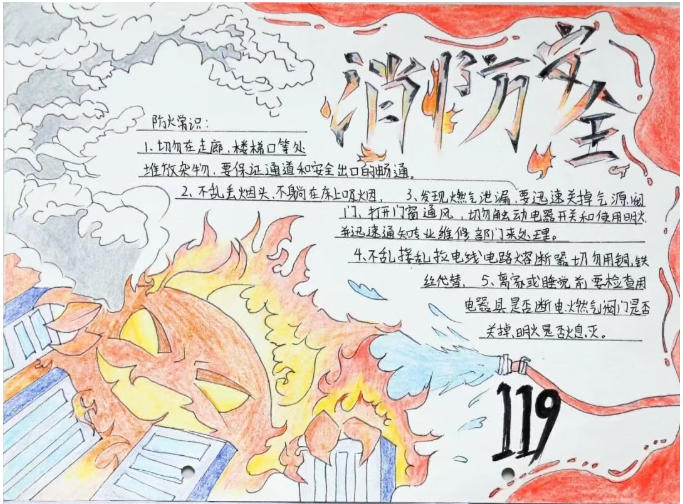 消防安全
防火常识:
1、切勿在走廊、楼梯口等处
堆放杂物,要保证通道和安全出口的畅通。
2、不乱丢烟头,不躺在床上吸烟。 3、发现燃气泄漏,要迅速关掉气源阀
门、打开门窗通风,切勿触动电器开关和使用明火
并迅速通知专业维修部门来处理。
4、不乱接乱拉电线,电路熔断器切勿用铜、铁
丝代替。 5、离家或睡觉前要检查用
电器具是否断电,燃气阀门是否
关掉、明火是否熄灭。
119